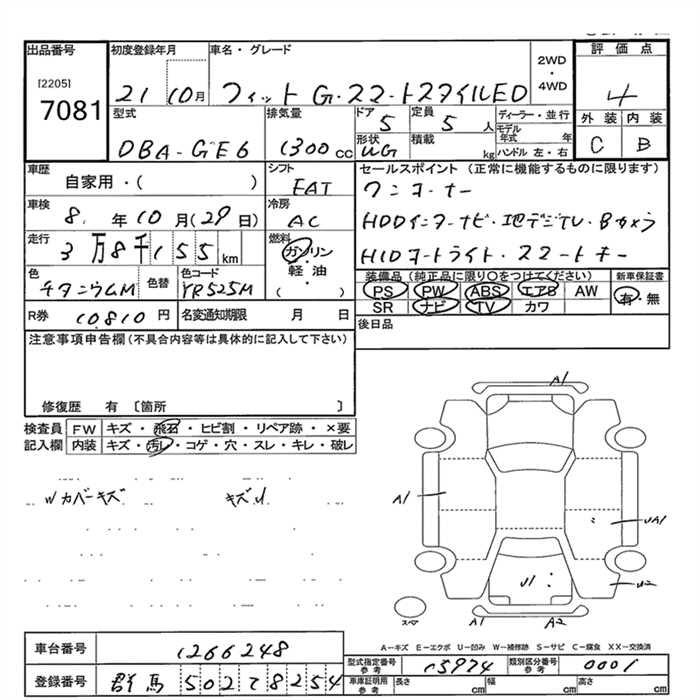 出品番号 初度登録年月 車名・グレード 2WD・4WD 評価点
[2205] 7081 21 10月 フィット G・スマートスタイルED 4
型式 排気量 ドア 定員 ディーラー・並行 外装 内装
DBA-GE6 1300cc 5 5人 モデル年式 年 C B
形状 積載 ハンドル 左・右
UG kg
車歴 シフト セールスポイント (正常に機能するものに限ります)
自家用・( ) FAT ワンオーナー
車検 冷房
8年10月(29日) AC HDDインターナビ・地デジTV・Bカメラ
走行 燃料
3万8千155km ガソリン・軽油( ) HIDオートライト・スマートキー
色 色替 色コード 装備品(純正品に限り○をつけてください) 新車保証書
チタニウムM YR525M PS PW ABS エアB AW 有・無
SR ナビ TV カワ
R券 10,810円 名変通知期限 月 日 後日品
注意事項申告欄(不具合内容等は具体的に記入して下さい)
修復歴 有 〔箇所 〕
検査員 FW キズ・飛石・ヒビ割・リペア跡・×要
記入欄 内装 キズ・汚レ・コゲ・穴・スレ・キレ・破レ
Wカバーキズ キズU
A1
A1
UA1
U1
U2
スペア
A1 A2
A-キズ E-エクボ U-凹み W-補修跡 S-サビ C-腐食 XX-交換済
車台番号 1266248
型式指定番号 参考 15974 類別区分番号 参考 0001
登録番号 群馬 502 8254
車庫証明用 参考 長さ cm 幅 cm 高さ cm